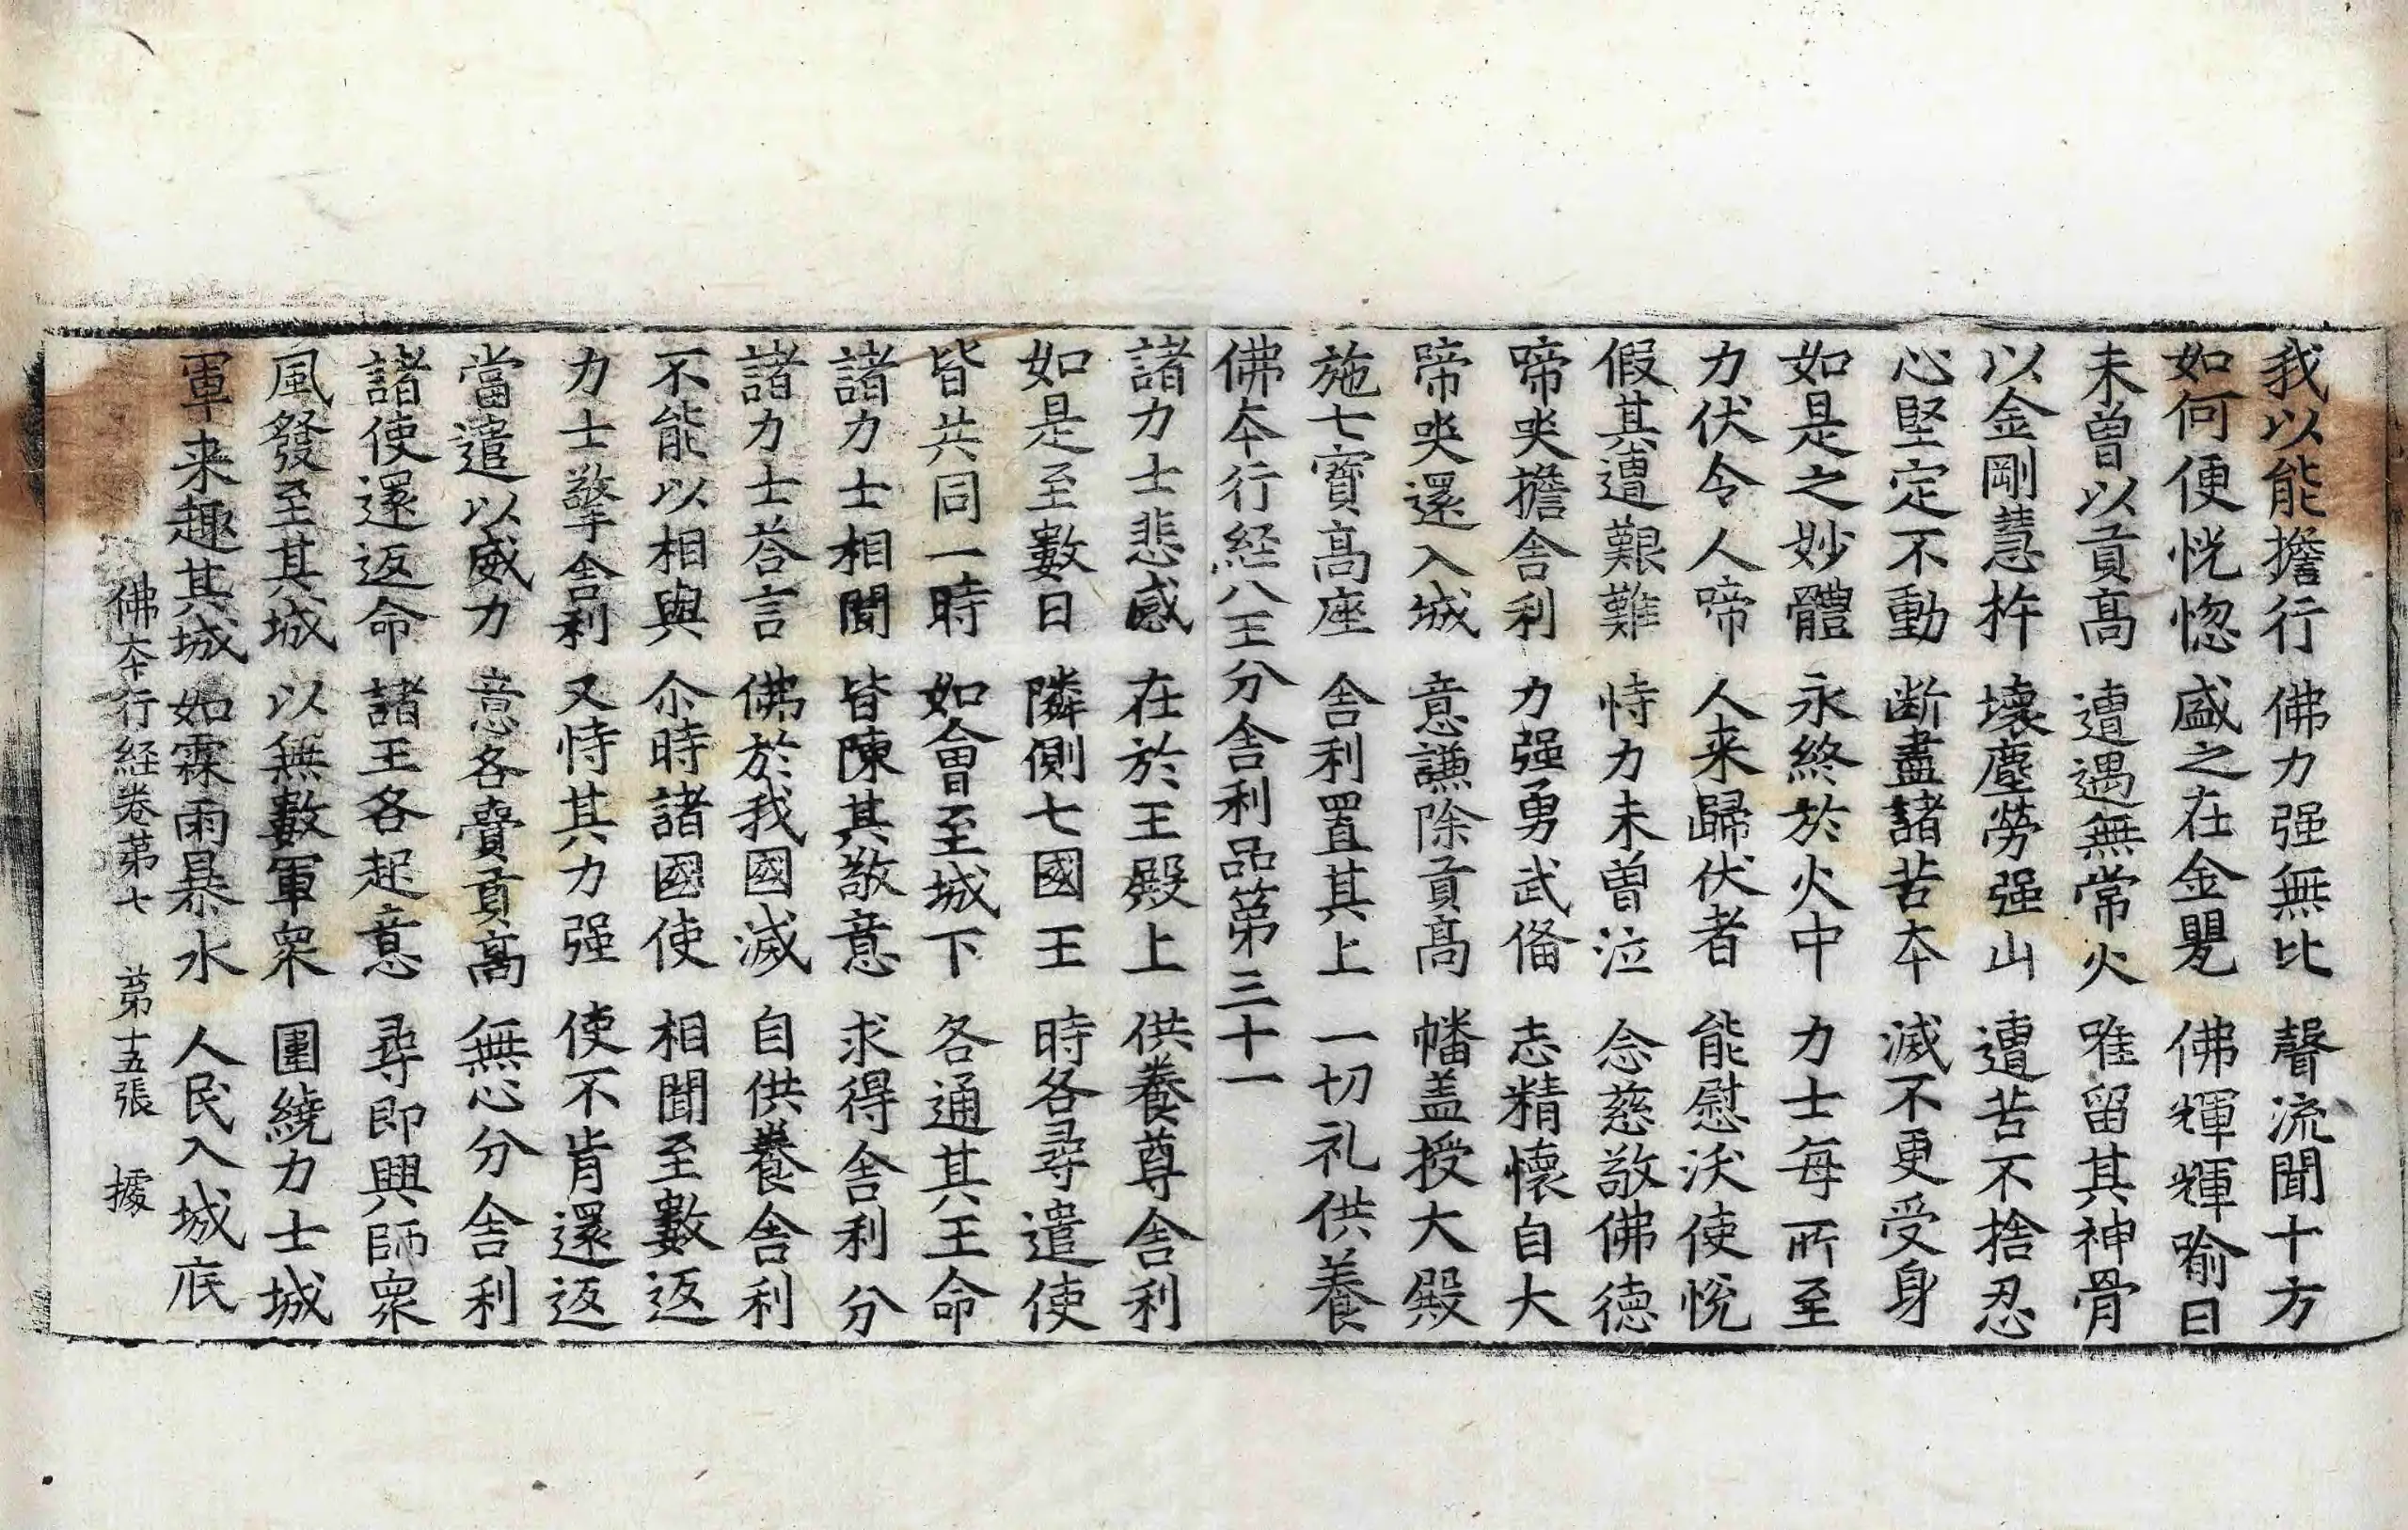 我以能擔行　佛力强無比　聲流聞十方
如何便恍惚　盛之在金甖　佛輝輝喻日
未曾以貢髙　遭遇無常火　唯留其神骨
以金剛慧杵　壞塵勞强山　遭苦不捨忍
心堅定不動　断盡諸苦本　滅不更受身
如是之妙體　永終於火中　力士每所至
力伏令人啼　人来歸伏者　能慰沃使悅
假其遭艱難　恃力未曾泣　念慈敬佛德
啼哭擔舍利　力强勇武俻　志精懷自大
啼哭還入城　意謙除貢髙　幡盖授大殿
施七寶髙座　舍利置其上　一切礼供養
佛夲行経八王分舍利品第三十一
諸力士悲感　在於王殿上　供養尊舍利
如是至數日　隣側七國王　時各尋遣使
皆共同一時　如會至城下　各通其王命
諸力士相聞　皆陳其敬意　求得舍利分
諸力士荅言　佛於我國滅　自供養舍利
不能以相與　尒時諸國使　相聞至數返
力士擎舍利　又恃其力强　使不肯還返
當遣以威力　意各賷貢髙　無心分舍利
諸使還返命　諸王各起意　尋即興師衆
風發至其城　以無數軍衆　圍繞力士城
軍来趣其城　如霖雨暴水　人民入城底
佛夲行経卷苐七　苐十五張　據